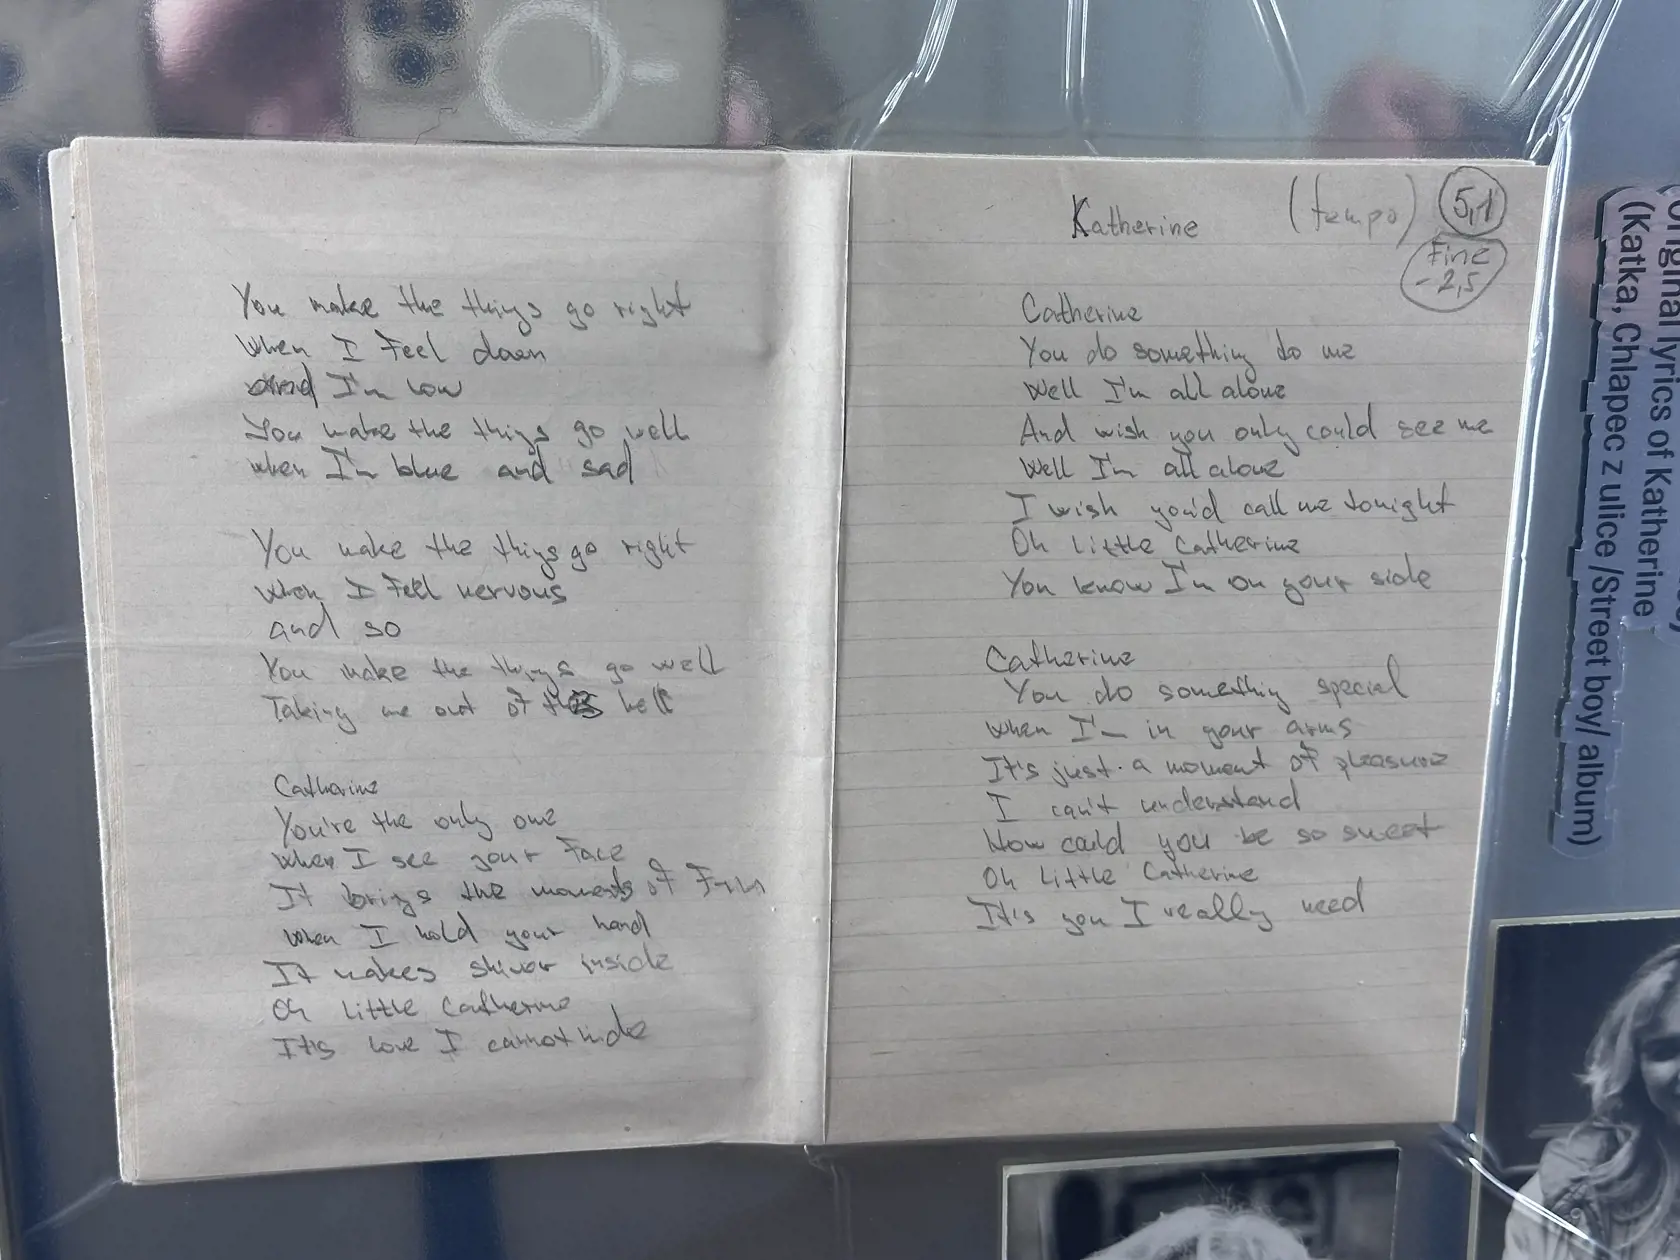 You make the things go right
when I feel down
and I'm low
You make the things go well
when I'm blue and sad
You make the things go right
when I feel nervous
and so
You make the things go well
Taking me out of this hell
Catherine
You're the only one
when I see your face
It brings the moments of
when I hold your hand
It makes shiver inside
Oh little Catherine
It's love I cannot hide
Katherine (tempo) 5,1
Fine
-2,5
Catherine
You do something to me
Well I'm all alone
And wish you only could see me
Well I'm all alone
I wish you'd call me tonight
Oh little Catherine
You know I'm on your side
Catherine
You do something special
when I'm in your arms
It's just a moment of pleasure
I can't understand
How could you be so sweet
Oh little Catherine
It's you I really need
Original lyrics of Katherine
(Katka, Chlapec z ulice /Street boy/ album)